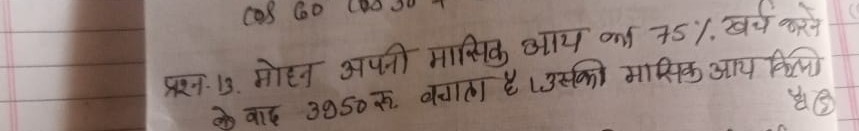 cos 60 cos 30
प्रश्न.13. मोहन अपनी मासिक आय का 75%. खर्च करने
के बाद 3950 रू बचाता है। उसकी मासिक आय कितनी
है